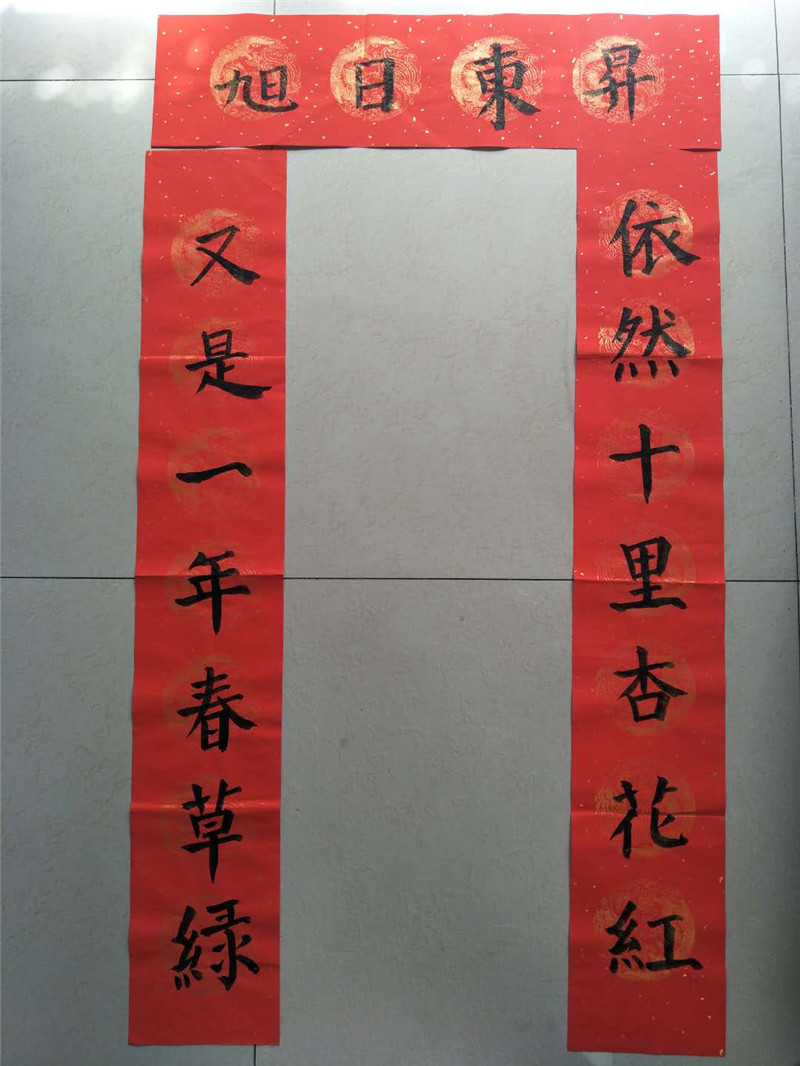 旭日東昇
又是一年春草緑
依然十里杏花紅